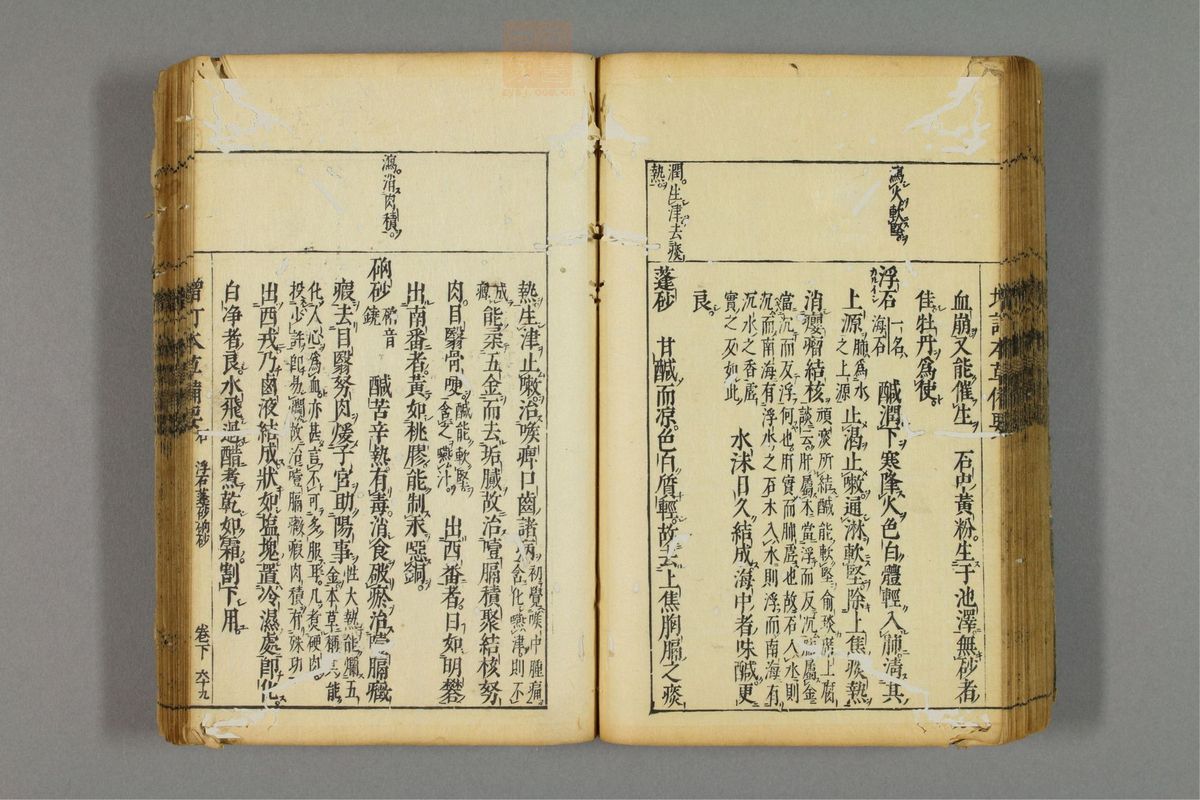 增訂本草備要
血崩又能催生 石中黃粉生于池澤無砂者
佳牡丹爲使
瀉火軟堅
浮石 一名海石 鹹潤下寒降火色白體輕入肺清其
カルイシ
上源 肺爲水之上源 止渴止嗽通淋軟堅除上焦痰熱
消癭瘤結核 頑痰所結鹹能軟堅俞琰席上腐
談云肝屬木當浮而反沉肺屬金
當沉而反浮何也肝實而肺虛也故石入水則
沉而南海有浮水之石木入水則浮而南海有
沉水之香虛實之反如此
水沫日久結成海中者味鹹更
良
潤生津去痰
熱
蓬砂 甘鹹而凉色白質輕故去上焦胸膈之痰
熱生津止嗽治喉痺口齒諸病 初覺喉中腫痛
含化嚥津則不
成癰 能柔五金而去垢膩故治噎膈積聚結核努
肉目翳骨哽 鹹能軟堅含之嚥汁 出西番者白如明礬
出南番者黃如桃膠能制汞啞銅
瀉消肉積
硇砂 硇音鐃 鹹苦辛熱有毒消食破瘀治噎膈癥
瘕去目翳努肉煖子宮助陽事 性大熱能爛五
金本草稱其能
化人心爲血亦甚言不可多服耳凡煮硬肉
投少許即易爛故治噎膈癥瘕肉積有殊功
出西戎乃鹵液結成狀如塩塊置冷濕處即化
白净者良水飛過醋煮乾如霜割下用
增訂本草備要 石 浮石蓬砂硇砂 卷下 六十九